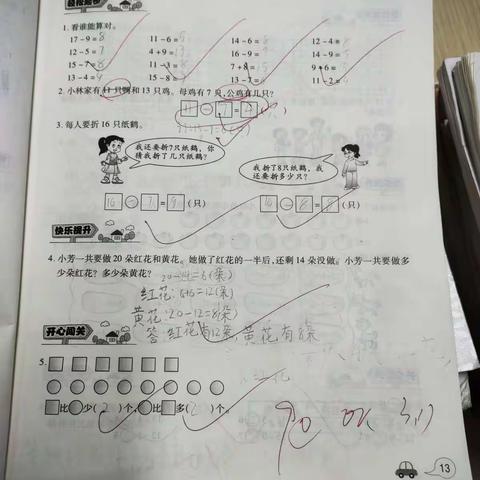 轻松起步
1. 看谁能算对。
17-9=8 11-6=5 14-6=8 12-4=8
12-5=7 4+9=13 16-9=7
15-7=8 11-3=8 7+8=15 9+6=
13-4=9 15-8= 13-7=6 11-2=
2. 小林家有11只鸭和13只鸡。母鸡有7只,公鸡有几只?
3. 每人要折16只纸鹤。
我还要折7只纸鹤,你猜我折了几只纸鹤?
我折了8只纸鹤,我还要折多少只?
16-7=9(只) 16-8=8(只)
快乐提升
4. 小芳一共要做20朵红花和黄花。她做了红花的一半后,还剩14朵没做。小芳一共要做多
少朵红花?多少朵黄花?
20-14=6(朵)
红花:6+6=12(朵)
黄花:20-12=8(朵)
答:红花有12朵,黄花有8朵
开心闯关
5.
比 少( )个, 比 多( )个。
13